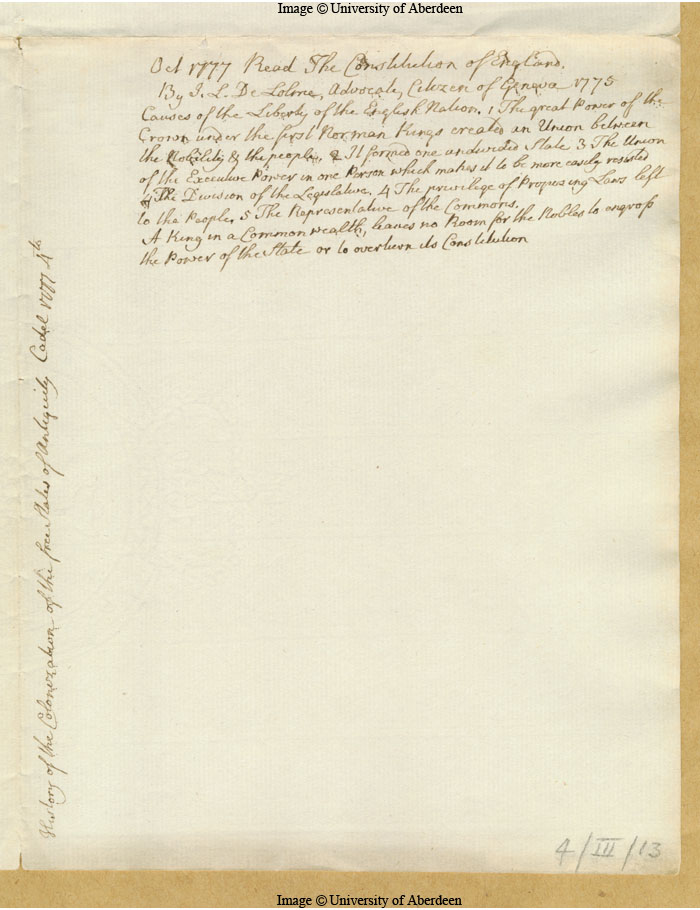 Image © University of Aberdeen
Oct 1777 Read The Constitution of England.
By J. L. De Lolme, Advocate, Citizen of Geneva 1775
Causes of the Liberty of the English Nation. 1 The great Power of the
Crown under the first Norman Kings created an Union between
the Nobility & the people, 2 It formed one undivided State 3 The Union
of the Executive Power in one Person which makes it to be more easily resisted
4 The Division of the Legislative. 4 The previlege of Proposing Laws left
to the People. 5 The Representative of the Commons.
A King in a Common wealth, leaves no Room for the Nobles to engross
the Power of the State or to overturn its Constitution
History of the Colonization of the free States of Antiquity Cadel 1777 4to
4/III/13
Image © University of Aberdeen